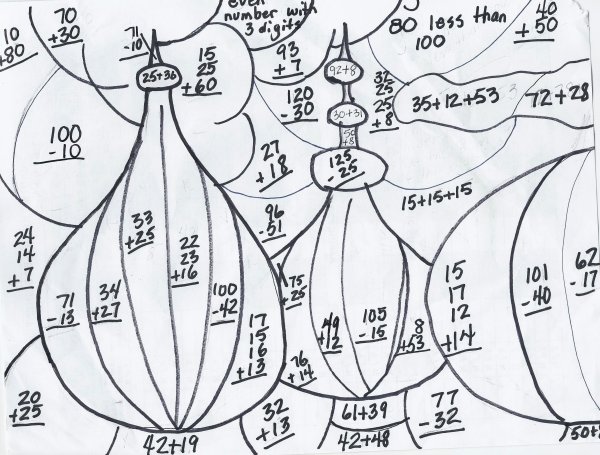 even
number with
3 digits
80 less than
100
10
+80
70
+30
71
-10
15
25
+60
93
+7
92+8
40
+50
25+36
120
-30
30+31
50
+8
32
25
25
+8
35+12+53
72+28
100
-10
27
+18
125
-25
15+15+15
33
+25
96
-51
24
14
+7
22
23
+16
71
-13
34
+27
100
-42
75
+25
15
17
12
+14
101
-40
62
-17
17
15
16
+13
49
+12
105
-15
8
+53
76
+14
20
+25
32
+13
61+39
77
-32
42+19
42+48